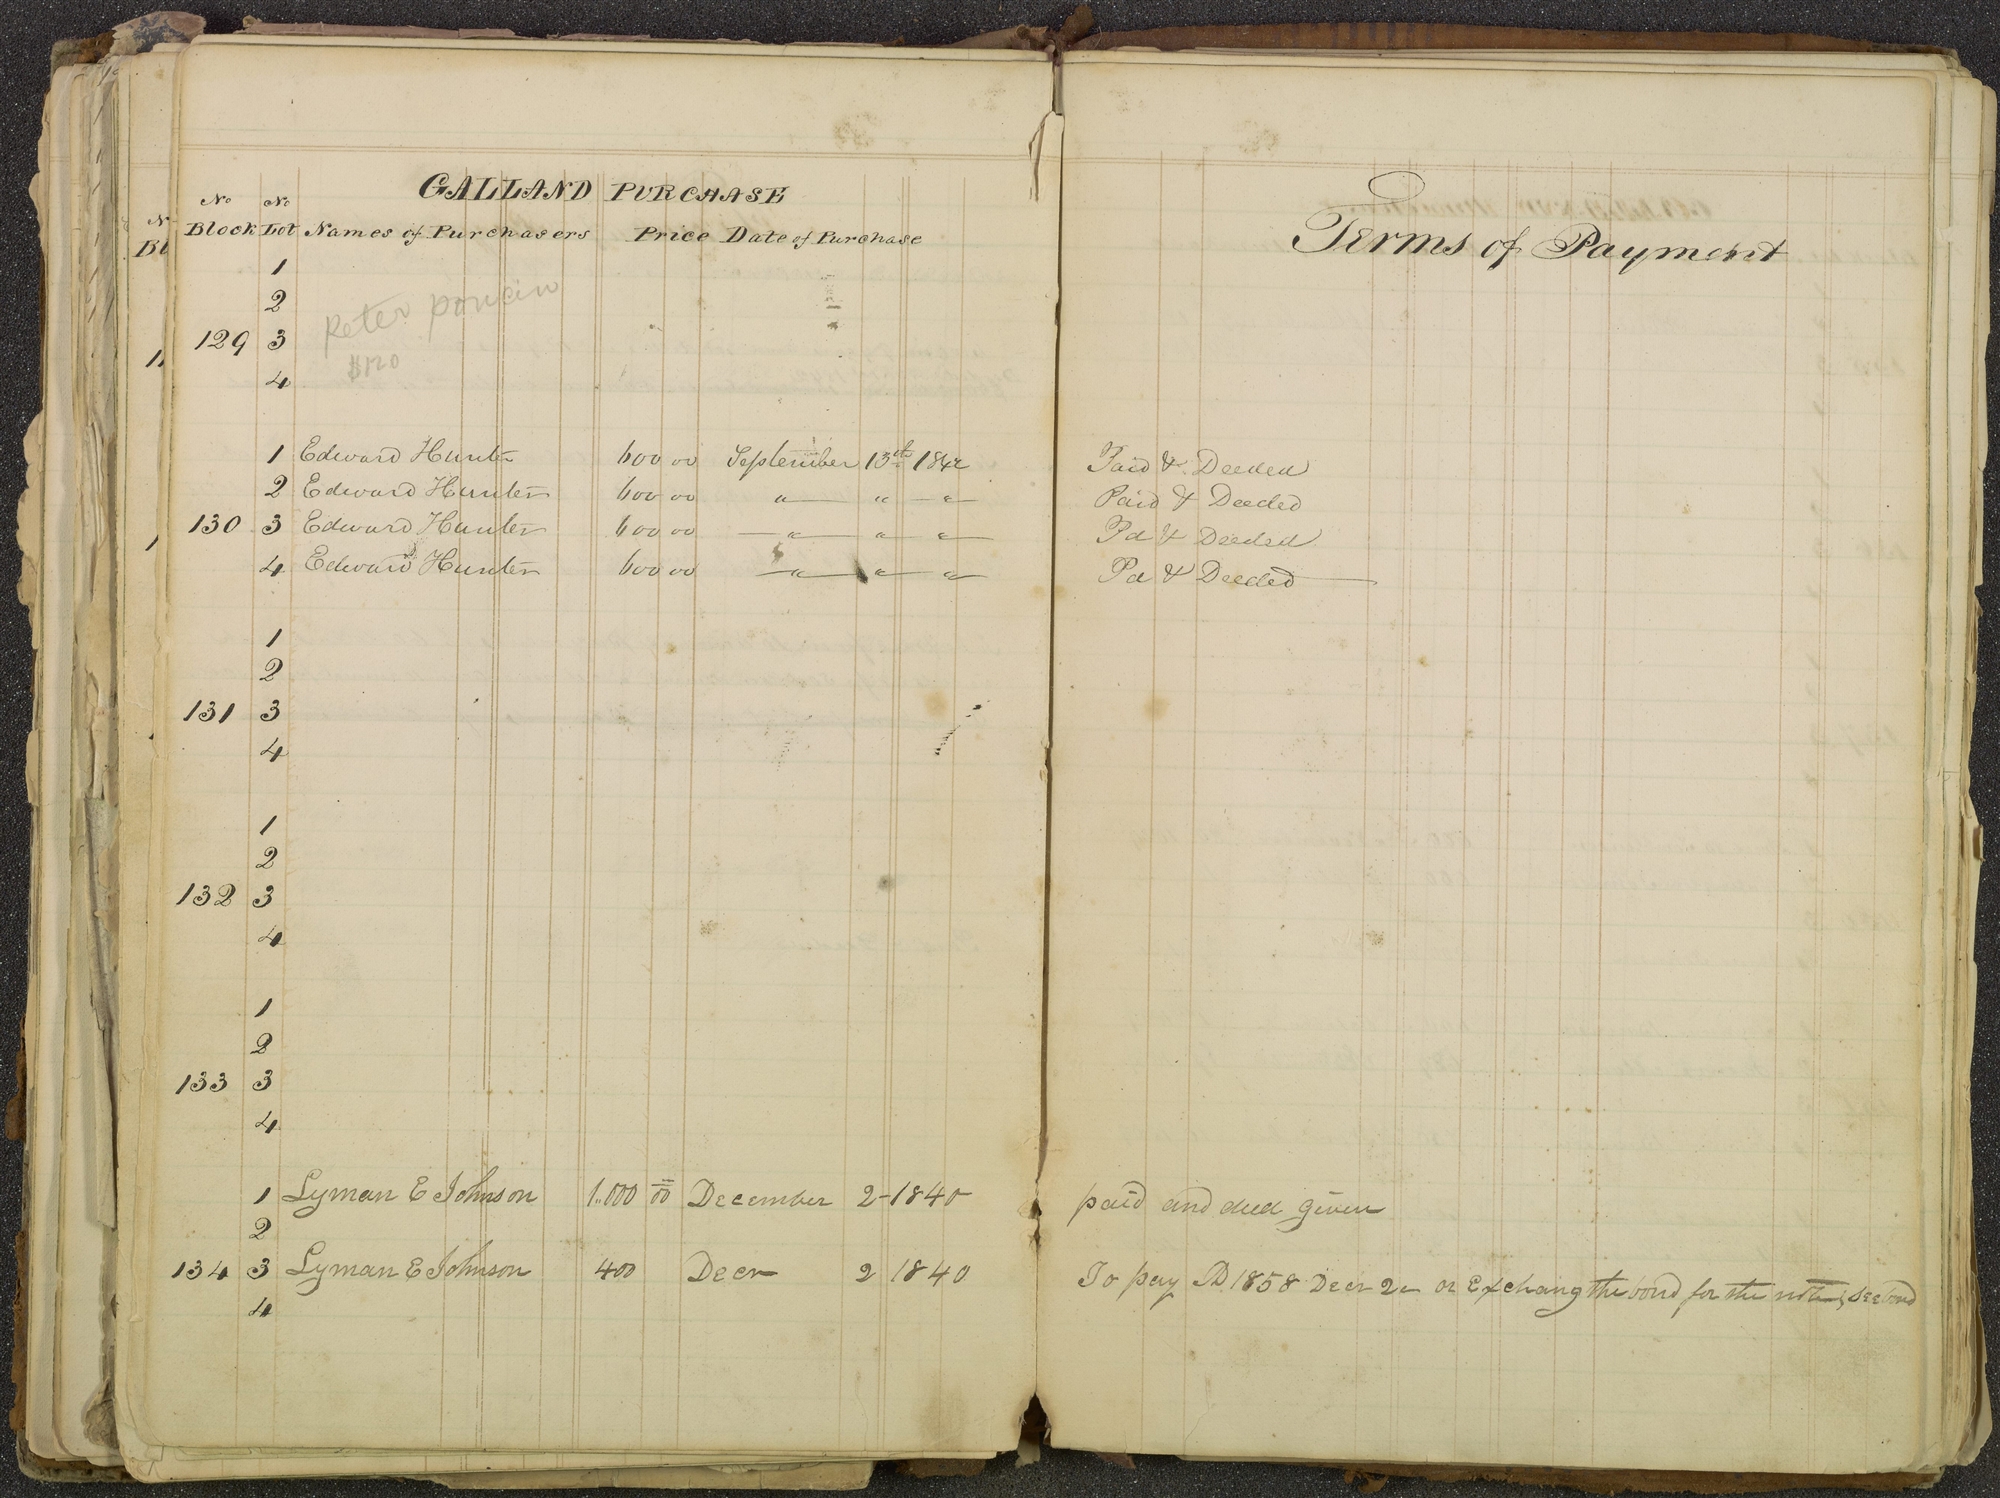 GALLAND PURCHASE
No No
Block Lot Names of Purchasers Price Date of Purchase
Terms of Payment
1
2 Peter poncin
129 3
$120
4
1 Edward Hunter 600 00 September 13th 1842 Paid & Deeded
2 Edward Hunter 600 00 " " " Paid & Deeded
130 3 Edward Hunter 600 00 " " " Pd & Deeded
4 Edward Hunter 600 00 " " " Pd & Deeded
1
2
131 3
4
1
2
132 3
4
1
2
133 3
4
1 Lyman E Johnson 1.000 00 December 2-1840 paid and deed given
2
134 3 Lyman E Johnson 400 Decr 2 1840 To pay 1858 Decr 2 or Exchang the bond for the note
4